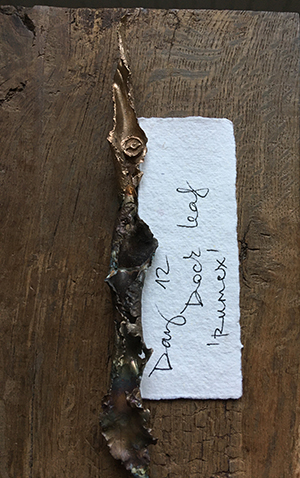 Day 12
Dock leaf
'Rumex'